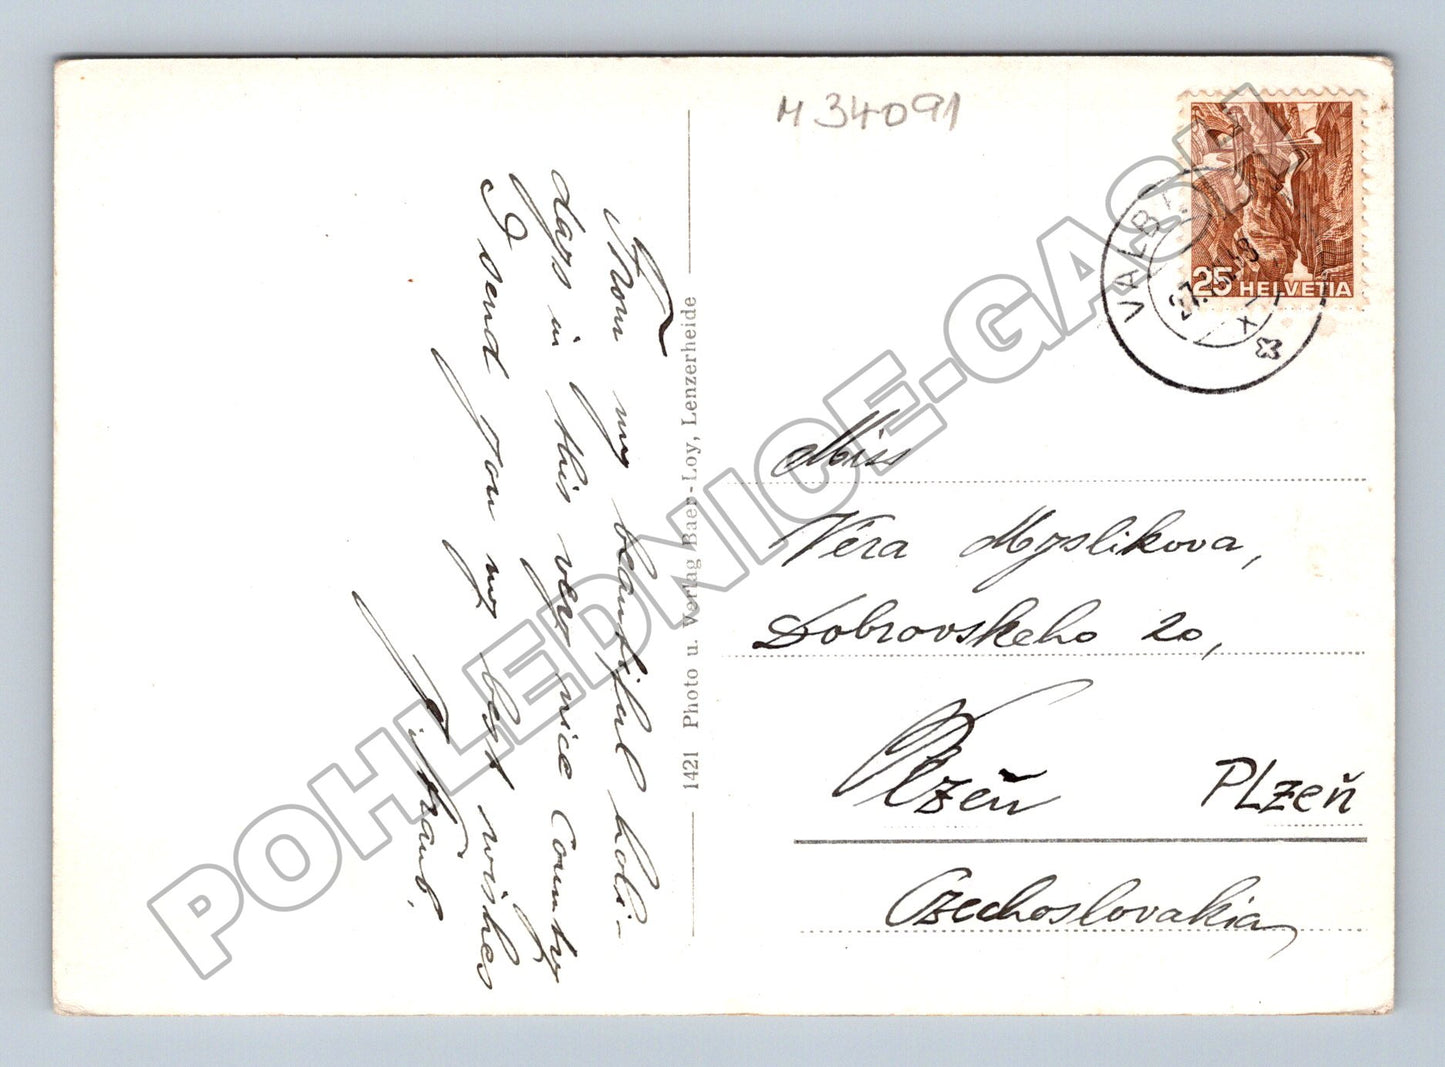 M 34091
25 HELVETIA
VALBE
27.
48
From my beautiful holi-
days in this very nice Country
I send you my best wishes
1421 Photo u. Verlag Baer-Loy, Lenzerheide
Miss
Věra Myslikova,
Dobrovskeho 20,
Plzeň PLzeň
Czechoslovakia
POHLEDNICE-GASH